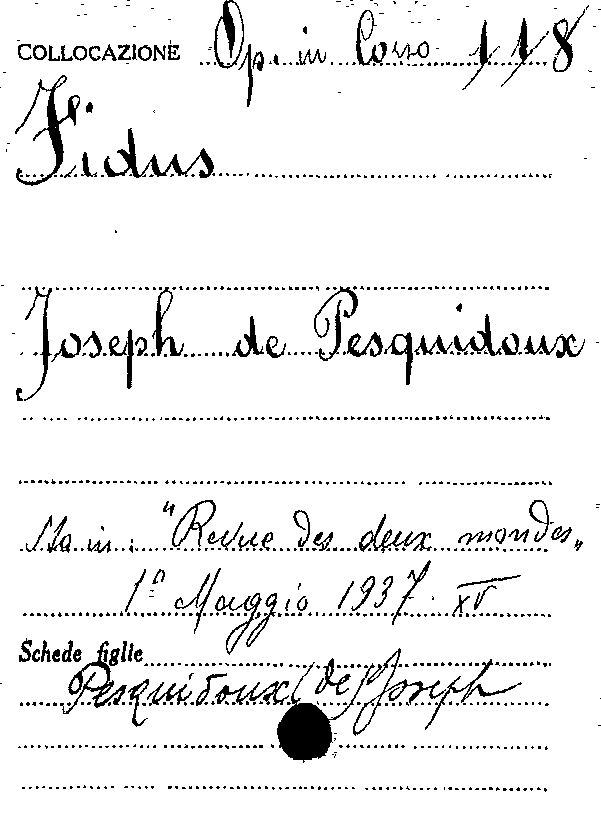 COLLOCAZIONE Op. in Corso 118
Fidus
Joseph de Pesquidoux
Sta in: "Revue des deux mondes„
1º Maggio 1937. XV
Schede figlie
Pesquidoux (de) Joseph